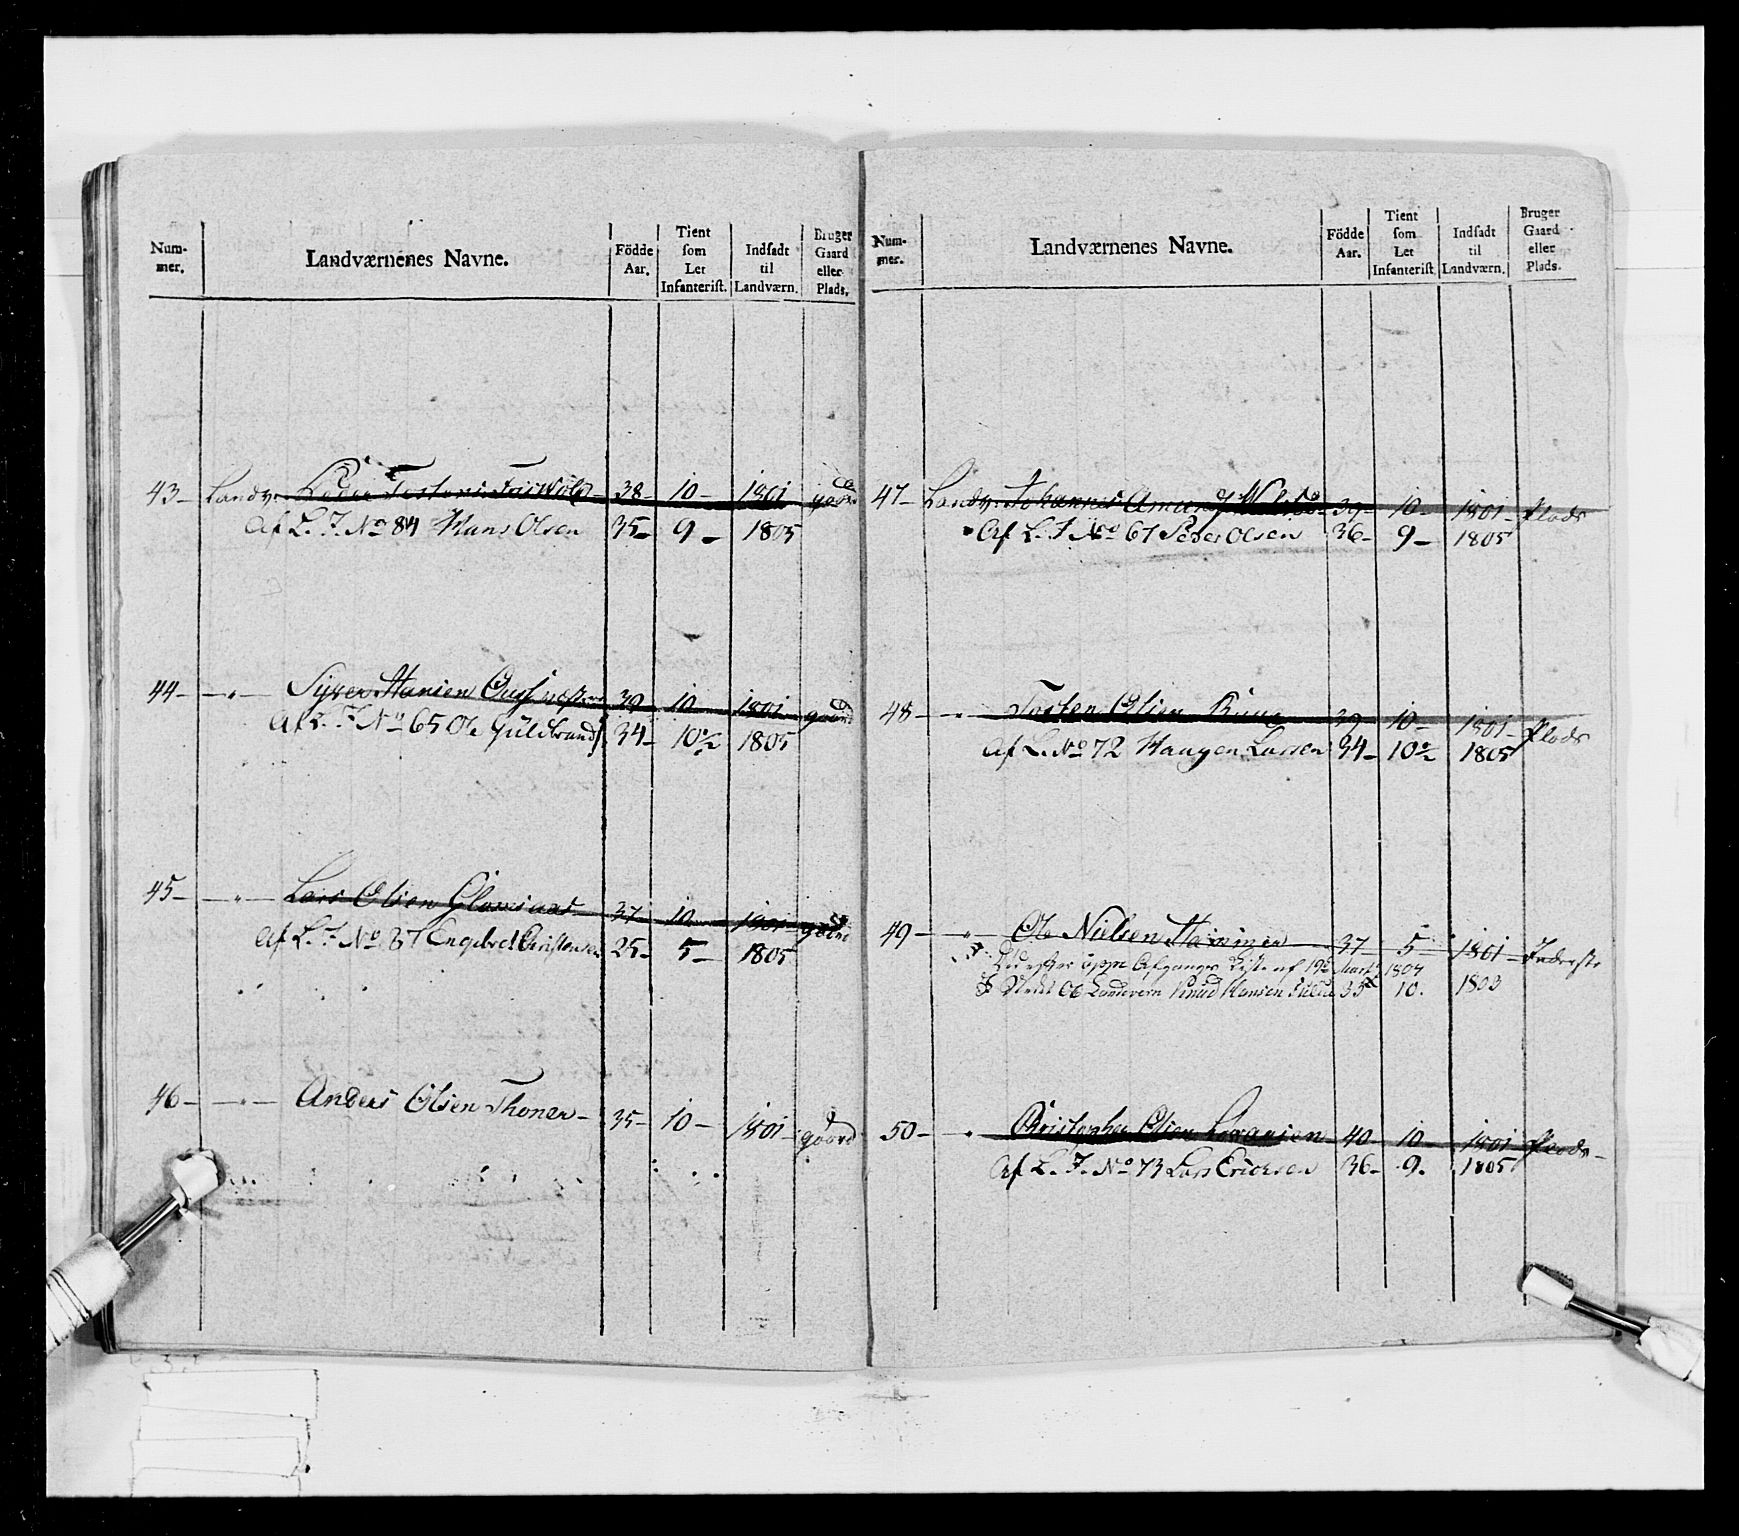 Num-
mer.
Landværnenes Navne.
Födde
Aar.
Tient
som
Let
Infanterist.
Indsadt
til
Landværn.
Bruger
Gaard
eller
Plads.
43 - Landv. Tostens 38 - 10 - 1801 gaard
Af L. I. No 84 Hans Olsen 35 - 9 - 1805
44 - " - Syver Hansen 39 10 1801 gaard
Af L. I. No 65 Ole Guldbrands 34 - 10 1/2 1805
45 - " - Lars Olsen 37 - 10 1801 gaard
Af L. I. No 37 Engebret Christensen 25 - 5 - 1805
46 - " - Anders Olsen Thoner - 35 - 10 - 1801 - gaard
Num-
mer.
Landværnenes Navne.
Födde
Aar.
Tient
som
Let
Infanterist.
Indsadt
til
Landværn.
Bruger
Gaard
eller
Plads.
47 - Landv. Johannes 39 - 10 - 1801 - Plads
Af L. I. No 67 Peder Olsen 36 - 9 - 1805
48 - " - Tosten Olsen 39 - 10 - 1801 - Plads
Af L. No 72 Haagen Larsen 34 - 10 1/2 1805
49 - " - Ole Nielsen 37 - 5 - 1801 - Inderste
Afgangs Liste af 19de Marti 1804
Knud Hansen 35 10. 1803
50 - " - Christopher Olsen 40 - 10 - 1801 - Plads -
Af L. I. No 73 Lars Ericksen 36 - 9. 1805